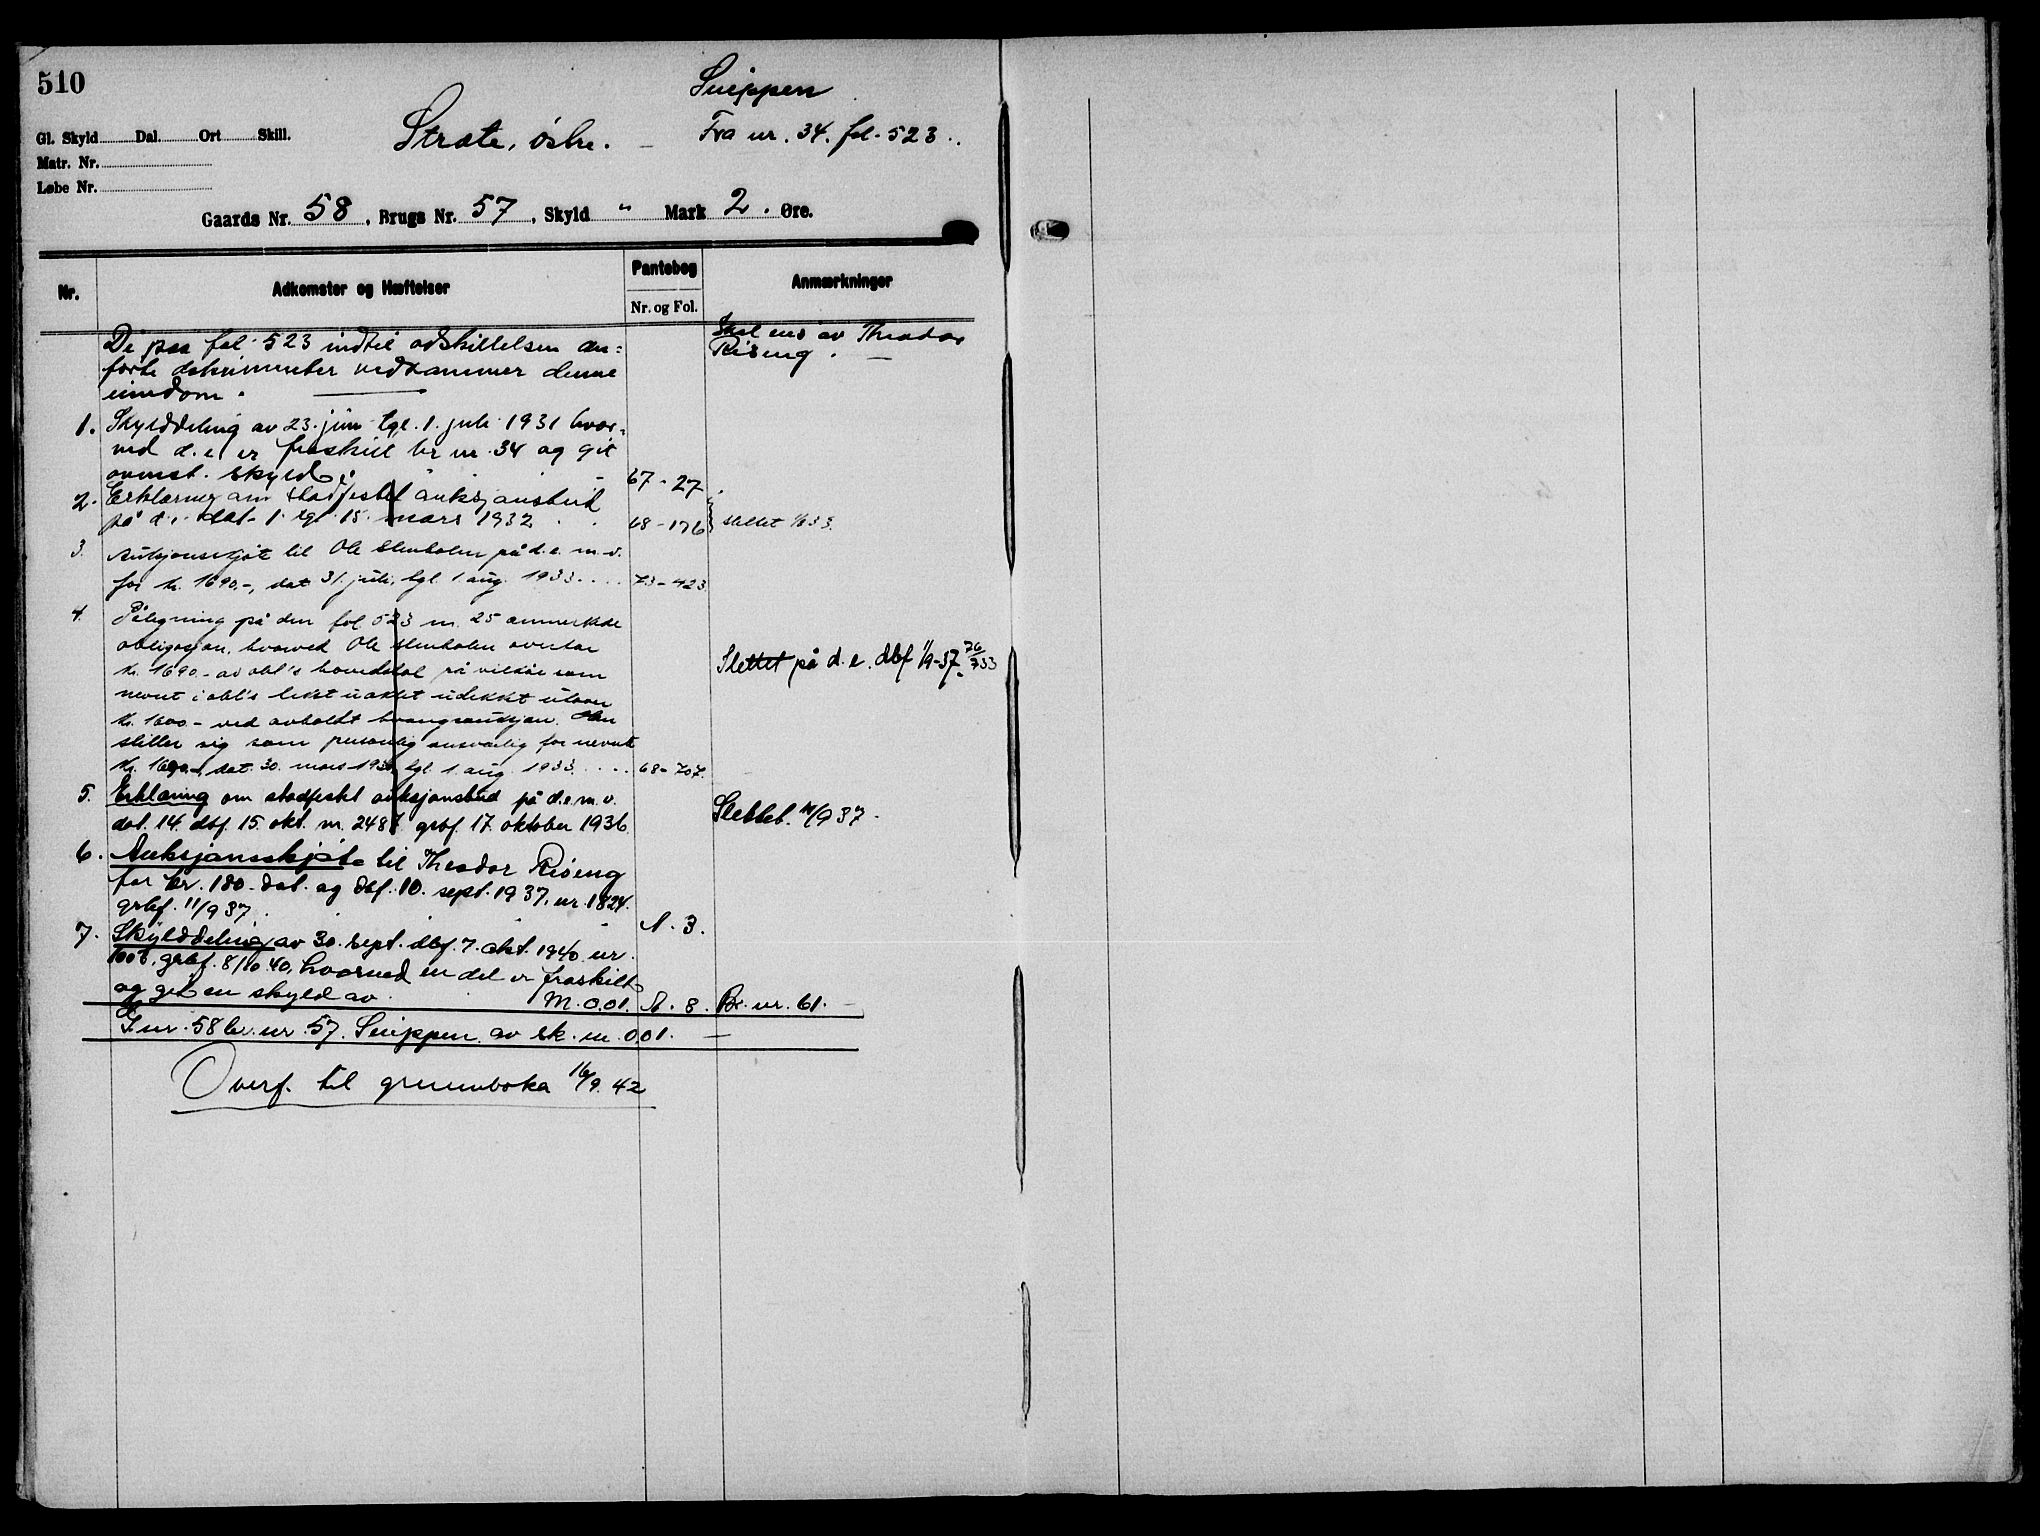 510
Snippen
Gl. Skyld Dal. Ort Skill.
Strate, østre. — Fra nr. 34. fol. 523.
Matr. Nr.
Løbe Nr.
Gaards Nr. 58, Brugs Nr. 57, Skyld " Mark 2. Øre.
Nr. Adkomster og Hæftelser Pantebog Nr. og Fol. Anmærkninger
De paa fol. 523 indtil adskillelsen an=
førte dokumenter vedkommer denne
eiendom.
Skal eies av Theodor
Riseng. —
1. Skylddeling av 23. juni tgl. 1. juli 1931 hvor-
ved d. e. er fraskilt br nr. 34 og git
ovenst. skyld 67-27
2. Erklæring om stadfestet auksjonsbud
på d. e. dat. 1. tgl 15. mars 1932 68-176 slettet 1/8 33.
3. Auksjonsskjøte til Ole Stenholen på d. e. m. v.
for kr. 1690.-, dat 31. juli, tgl. 1 aug. 1933 .... 73-423
4. Påtegning på den fol 523 nr. 25 anmerkede
obligasjon, hvorved Ole Stenholen overtar
kr. 1690.- av obl's hovedstol på vilkår som
nevnt i obl's tekst uaktet udekket utover
kr. 1600.- ved avholdt tvangsauksjon. Han
stiller sig som personlig ansvarlig for nevnte
kr. 1690.-, dat. 30. mars 1933, tgl. 1. aug. 1933. .... 68-707.
Slettet på d. e. dbf 1/9-37. 76/733
5. Erklæring om stadfestet auksjonsbud på d.e.m.v.
dat. 14. dbf. 15. okt. nr. 2487 grbf. 17. oktober 1936.
Slettet. 11/9 37.
6. Auksjonsskjøte til Theodor Riseng
for kr. 180.- dat. og dbf. 10. sept. 1937, nr. 1824.
grbf. 11/9 37. A. 3.
7. Skylddeling av 30. sept. dbf. 7. okt. 1940 nr.
grbf. 8/10.40, hvorved en del er fraskilt
og git en skyld av M. 0.01. A. 8. Br. nr. 61. —
G. nr. 58 br. nr. 57. Snippen av sk. m. 0,01. —
Overf. til grunnboka 16/9. 42